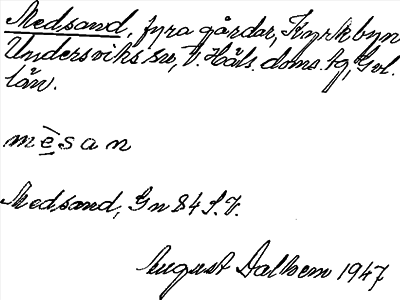 Medsand, fyra gårdar, Kyrkbyn
Undersviks sn, V. Häls. doms. tg, Gvl.
län.
mèsan
Medsand, Gn 84 S.V.
August Dalhem 1947